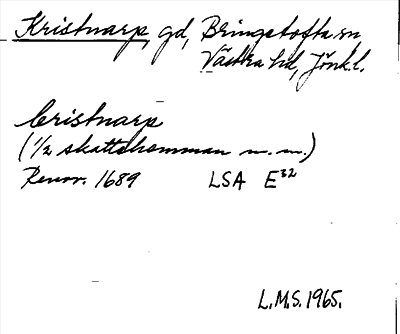 Kristnarp, gd, Bringetofta sn
Västra hd, Jönk.l.
Cristnarp
(1/2 skattehemman m.m.)
Renov. 1689 LSA E32
L.M.S. 1965.